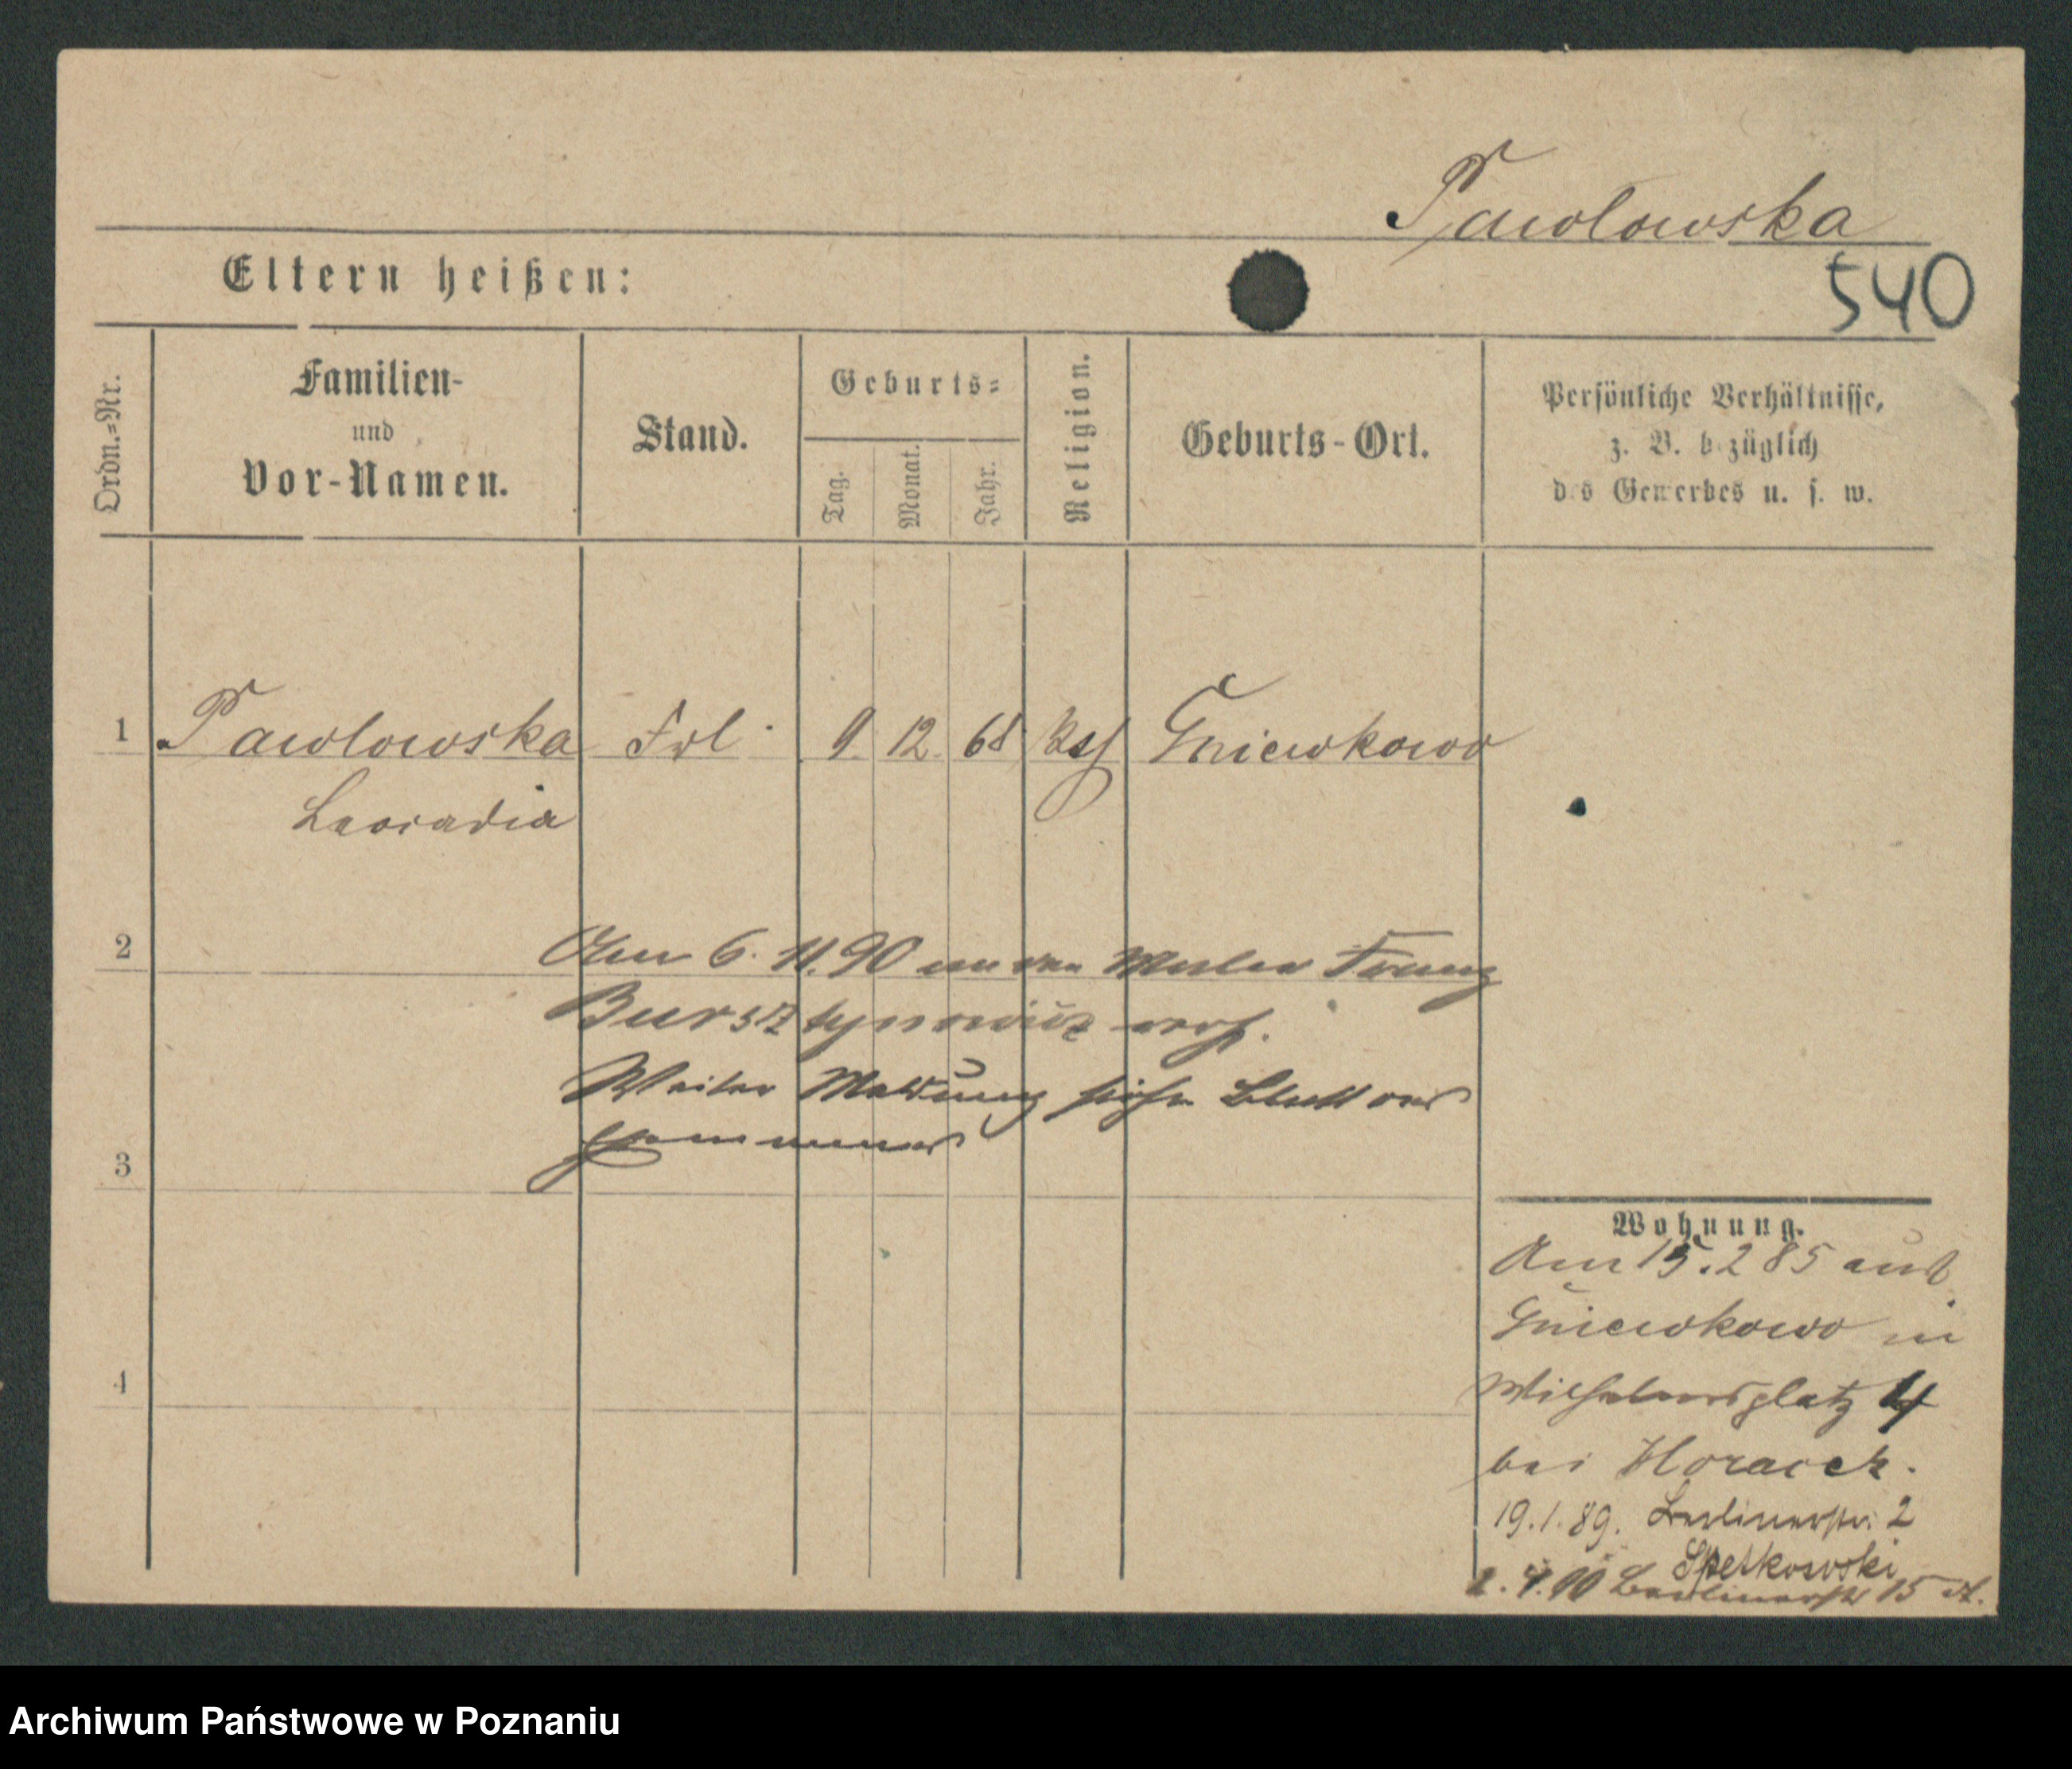 Pawlowska
540
Eltern heißen:
Ordn.=Nr.
Familien-
und
Vor-Namen.
Stand.
Geburts=
Tag.
Monat.
Jahr.
Religion.
Geburts-Ort.
Persönliche Verhältnisse,
z. B. bezüglich
des Gewerbes u. s. w.
1 Pawlowska Frl. 9. 12. 68 Gniewkowo
Leocadia
2
Am 6. 11. 90 an den Maler Franz
Bursztynowicz verh.
Weitere Meldung siehe Blatt des
3
4
Wohnung.
Am 15.2 85 aus
Gniewkowo in
Wilhelmsplatz 4
bei Horacek.
19.1.89. Berlinerstr. 2
Spetkowski
90 Berlinerstr 15
Archiwum Państwowe w Poznaniu